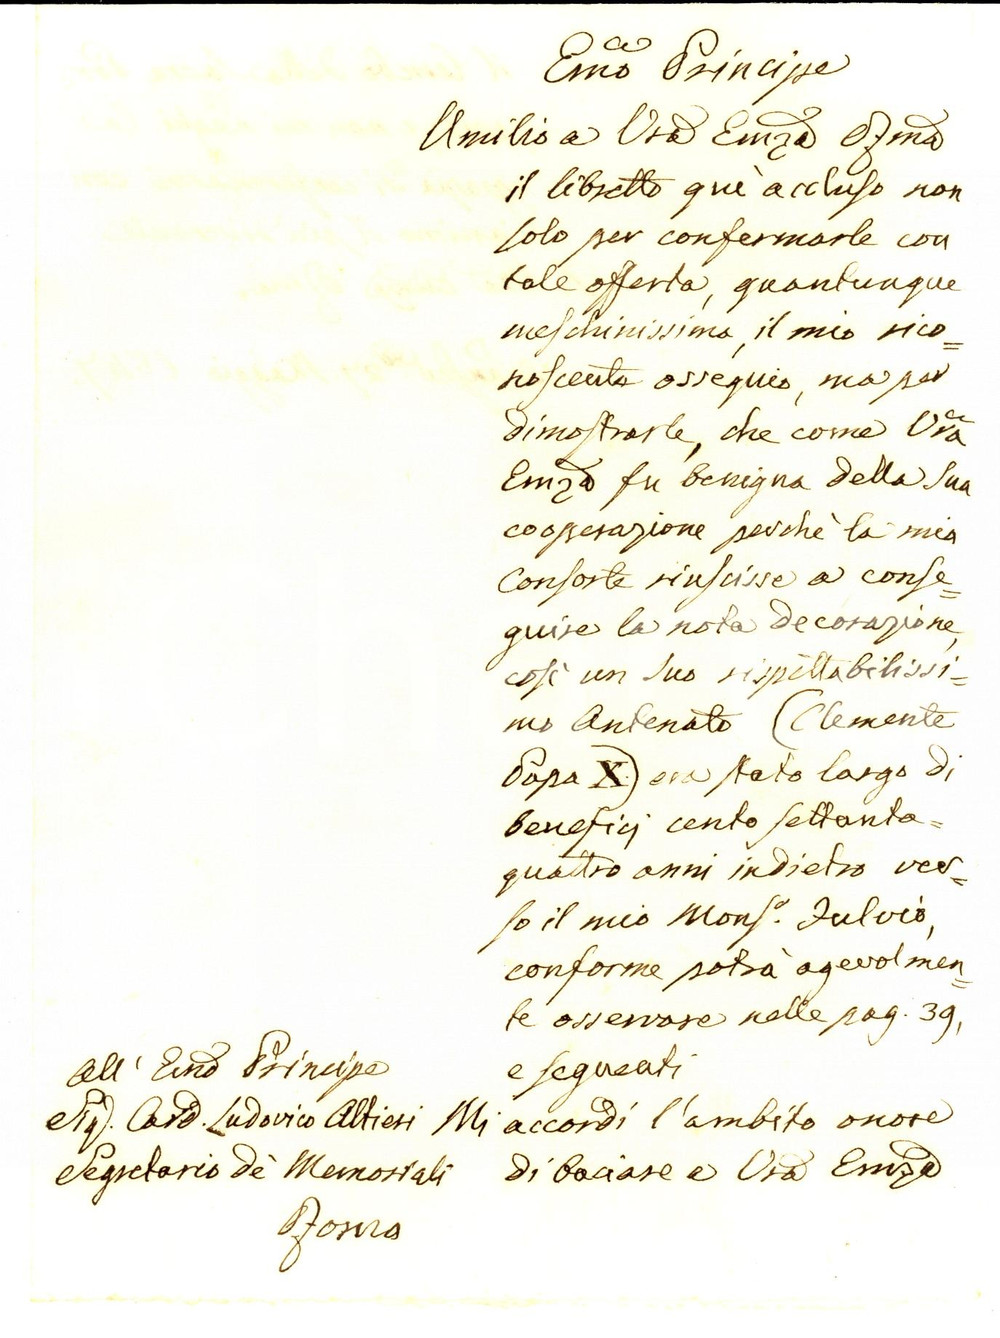 Emo Principe
Umilio a Vra Emza Rma
il libretto quì accluso non
solo per confermarle con
tale offerta, quantunque
meschinissima, il mio rico=
noscente ossequio, ma per
dimostrarle, che come Vra
Emza fu benigna della Sua
cooperazione perchè la mia
Consorte riuscisse a conse=
guire la nota decorazione,
così un Suo rispettabilissi=
mo Antenato (Clemente
Papa X) era stato largo di
beneficj cento settanta=
quattro anni indietro ver=
so il mio Monsr. Fulvio,
conforme potrà agevolmen=
te osservare nelle pag. 39,
e seguenti
Mi accordi l'ambito onore
di baciare a Vra Emza
All' Emo Principe
Sig. Card. Ludovico Altieri
Segretario dè Memoriali
Roma